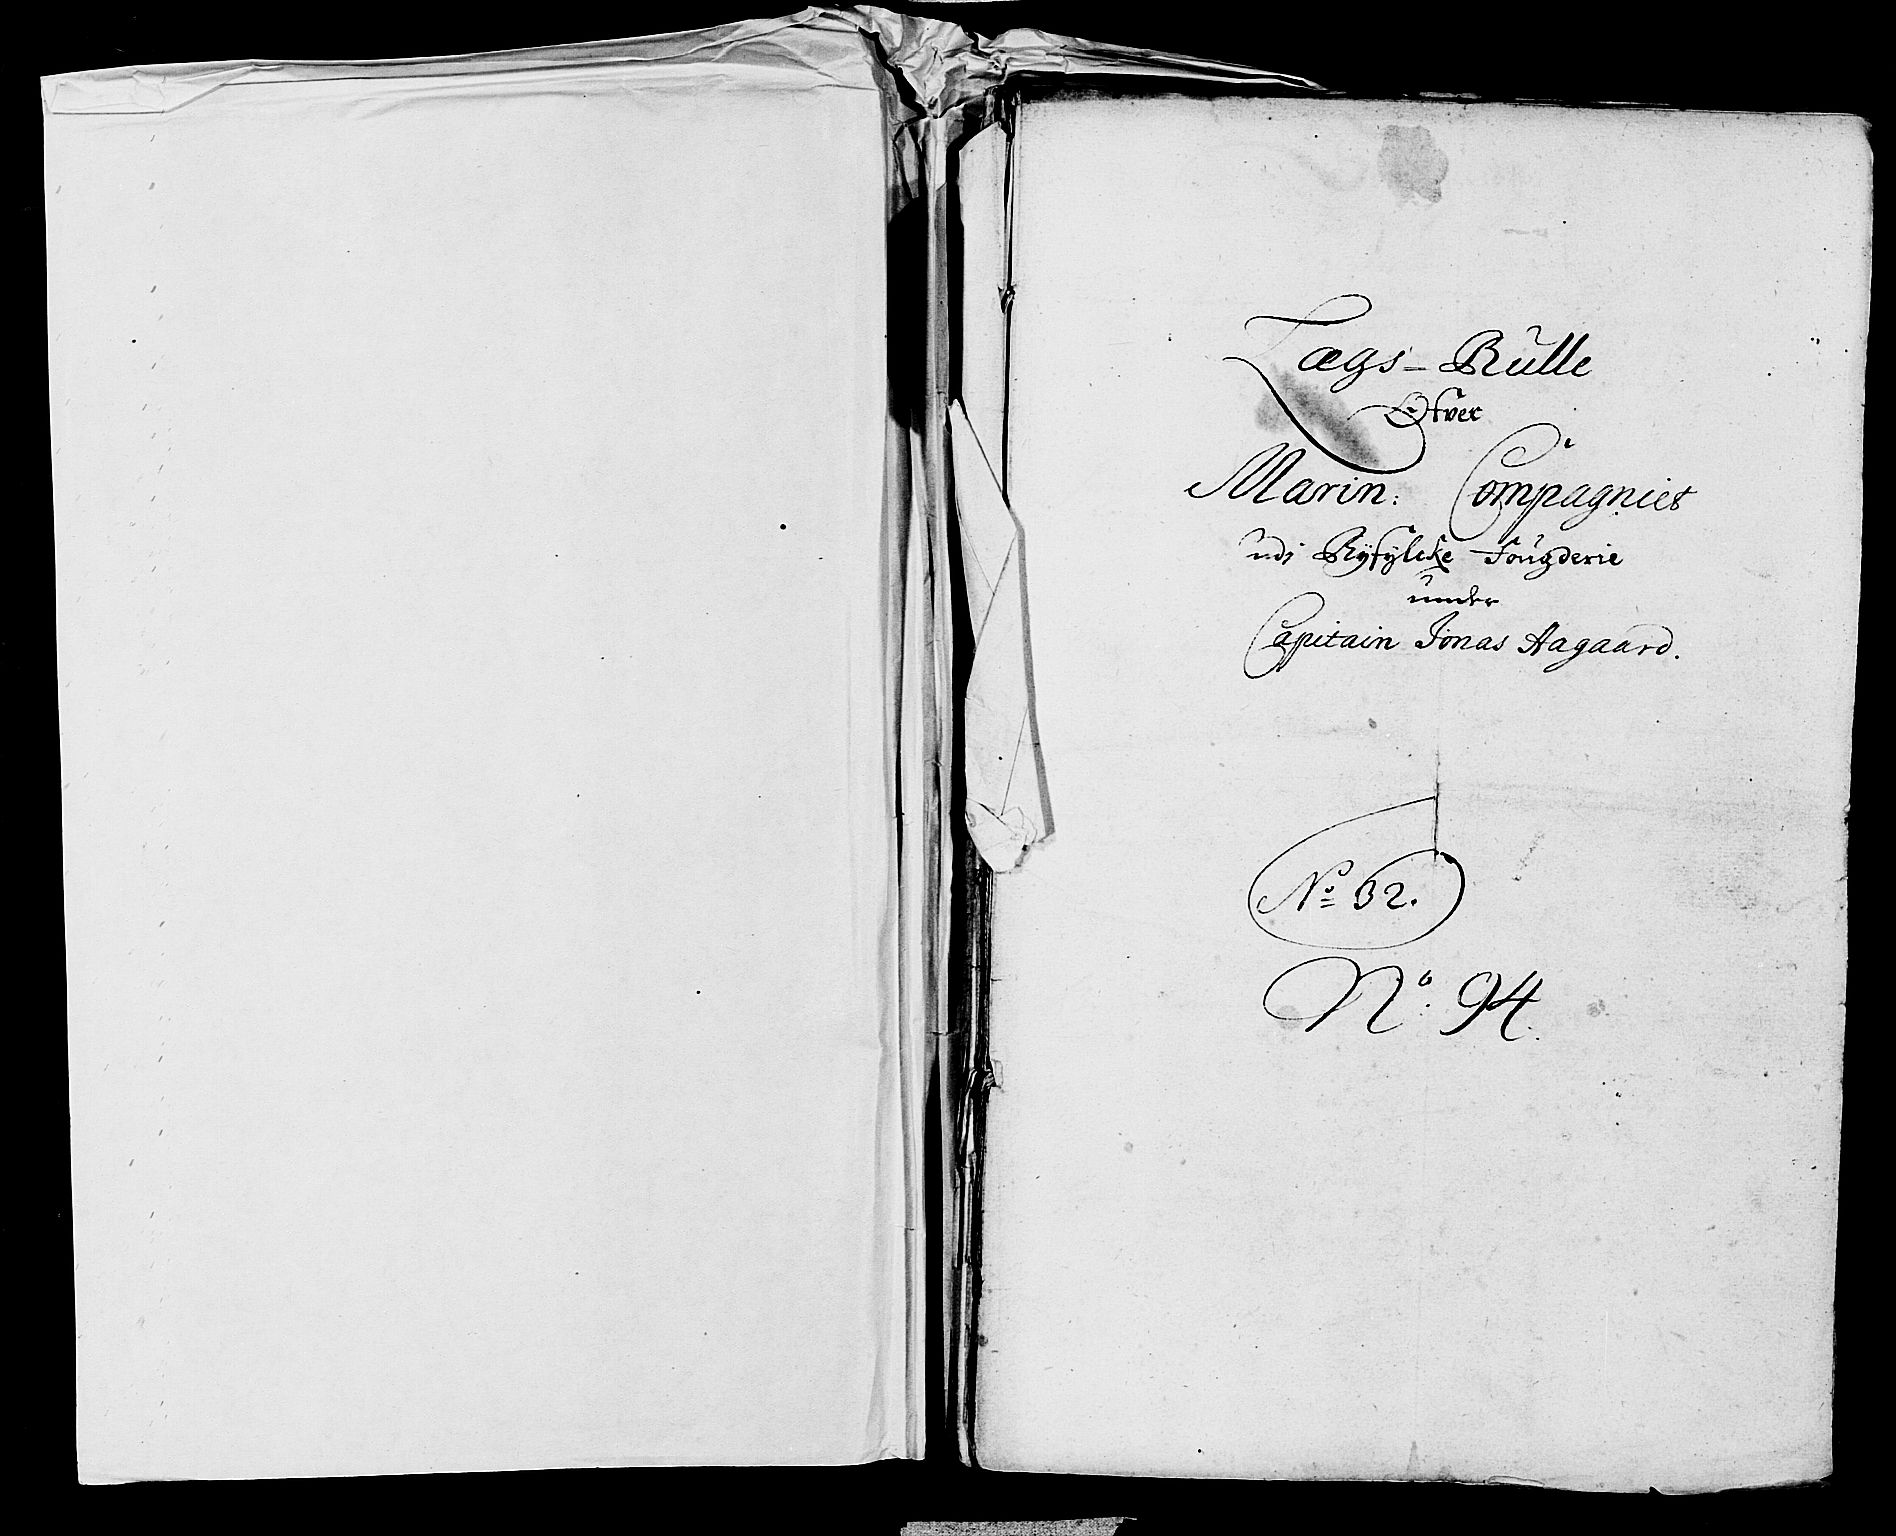 Lægs-Rulle
Ofver
Marin: Compagniet
udj Ryfylcke Fougderie
under
Capitain Jonas Aagaard.
No 32.
No. 94.